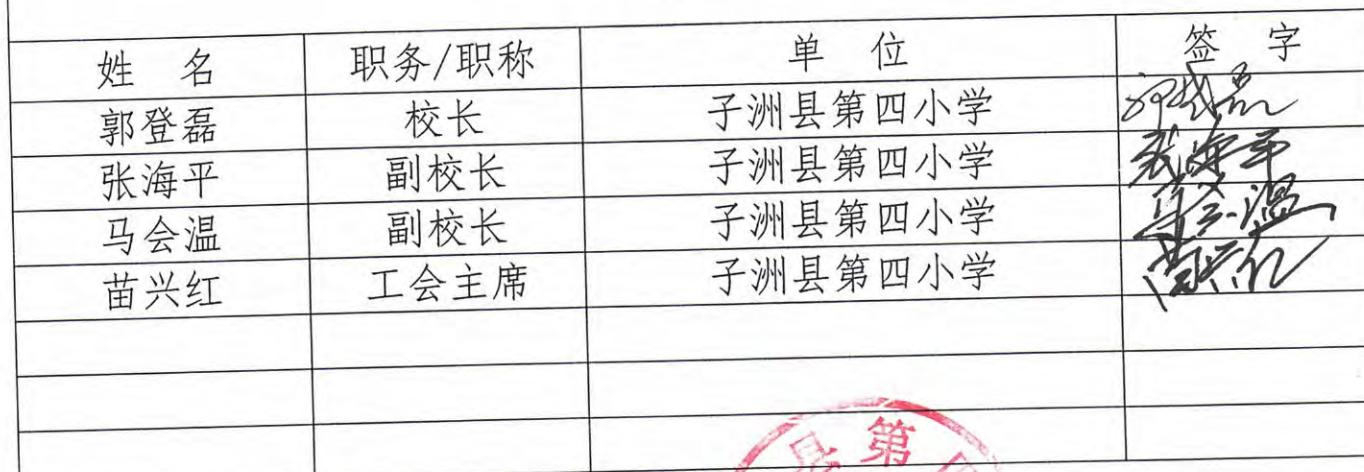 姓 名 职务/职称 单 位 签 字
郭登磊 校长 子洲县第四小学 郭登磊
张海平 副校长 子洲县第四小学 张海平
马会温 副校长 子洲县第四小学 马会温
苗兴红 工会主席 子洲县第四小学 苗兴红
县第